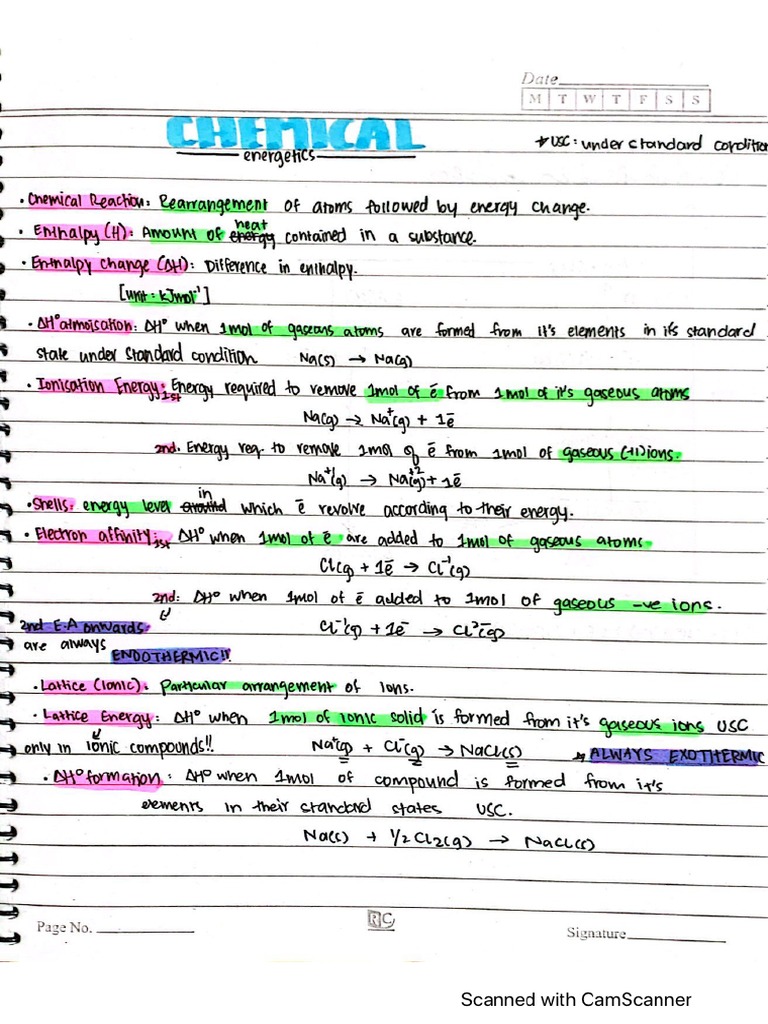 Date
M T W T F S S
CHEMICAL
energetics
* USC: under standard condition
• Chemical Reaction: Rearrangement of atoms followed by energy change.
• Enthalpy (H): Amount of ~~energy~~ heat contained in a substance.
• Enthalpy change (ΔH): Difference in enthalpy.
[unit: kJmol⁻¹]
• ΔH° atmoisation: ΔH° when 1mol of gaseous atoms are formed from it's elements in it's standard
state under standard condition Na(s) → Na(g)
• Ionisation Energy: 1st Energy required to remove 1mol of ē from 1mol of it's gaseous atoms
Na(g) → Na⁺(g) + 1ē
2nd. Energy req. to remove 1mol of ē from 1mol of gaseous (+1) ions.
Na⁺(g) → Na⁺²(g) + 1ē
• Shells: energy level ~~around~~ in which ē revolve according to their energy.
• Electron affinity: 1st ΔH° when 1mol of ē are added to 1mol of gaseous atoms
Cl(g) + 1ē → Cl⁻¹(g)
2nd: ΔH° when 1mol of ē added to 1mol of gaseous -ve ions.
2nd E.A onwards
are always
ENDOTHERMIC!!
Cl⁻¹(g) + 1ē → Cl²⁻(g)
• Lattice (Ionic): Particular arrangement of ions.
• Lattice Energy: ΔH° when 1mol of ionic solid is formed from it's gaseous ions USC
only in ionic compounds!! Na⁺(g) + Cl⁻(g) → NaCl(s) ALWAYS EXOTHERMIC
• ΔH° formation: ΔH° when 1mol of compound is formed from it's
elements in their standard states USC.
Na(s) + 1/2 Cl₂(g) → NaCl(s)
Page No.
RC
Signature
Scanned with CamScanner